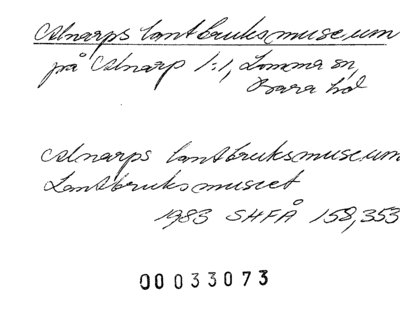 Alnarps lantbruksmuseum
på Alnarp 1:1, Lomma sn,
Bara hd
Alnarps lantbruksmuseum
Lantbruksmuseet
1983 SHFÅ 158,353
00033073